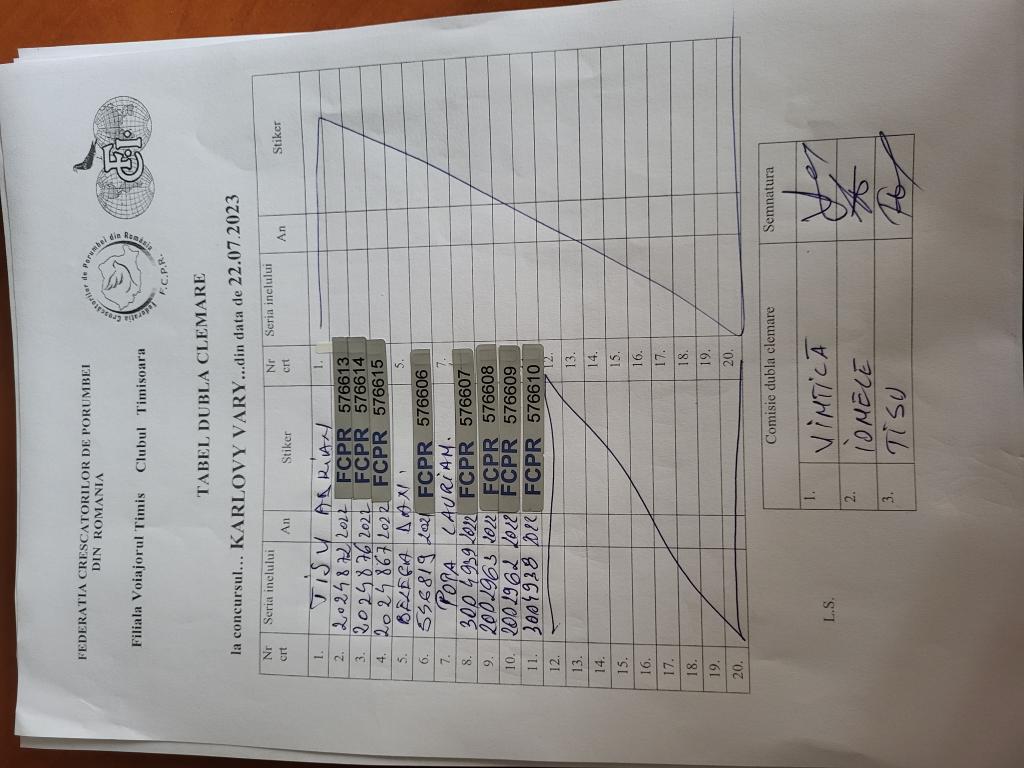 FEDERATIA CRESCATORILOR DE PORUMBEI
DIN ROMANIA
Federatia Crescatorilor de Porumbei din România
F.C.P.R.
Filiala Voiajorul Timis Clubul Timisoara
TABEL DUBLA CLEMARE
la concursul... KARLOVY VARY...din data de 22.07.2023
Nr crt Seria inelului An Stiker Nr crt Seria inelului An Stiker
1. TISU ADRIAN 1.
2. 2024872 2022 FCPR 576613
3. 2024876 2022 FCPR 576614
4. 2024867 2022 FCPR 576615
5. DAN 5.
6. 536819 2022 FCPR 576606
7. POPA 7.
8. 3004939 2022 FCPR 576607
9. 2001963 2022 FCPR 576608
10. 2001962 2022 FCPR 576609
11. 3004938 2022 FCPR 576610
12. 12.
13. 13.
14. 14.
15. 15.
16. 16.
17. 17.
18. 18.
19. 19.
20. 20.
Comisie dubla clemare Semnatura
1. VINTILĂ
2. IONELE
3. TISU
L.S.